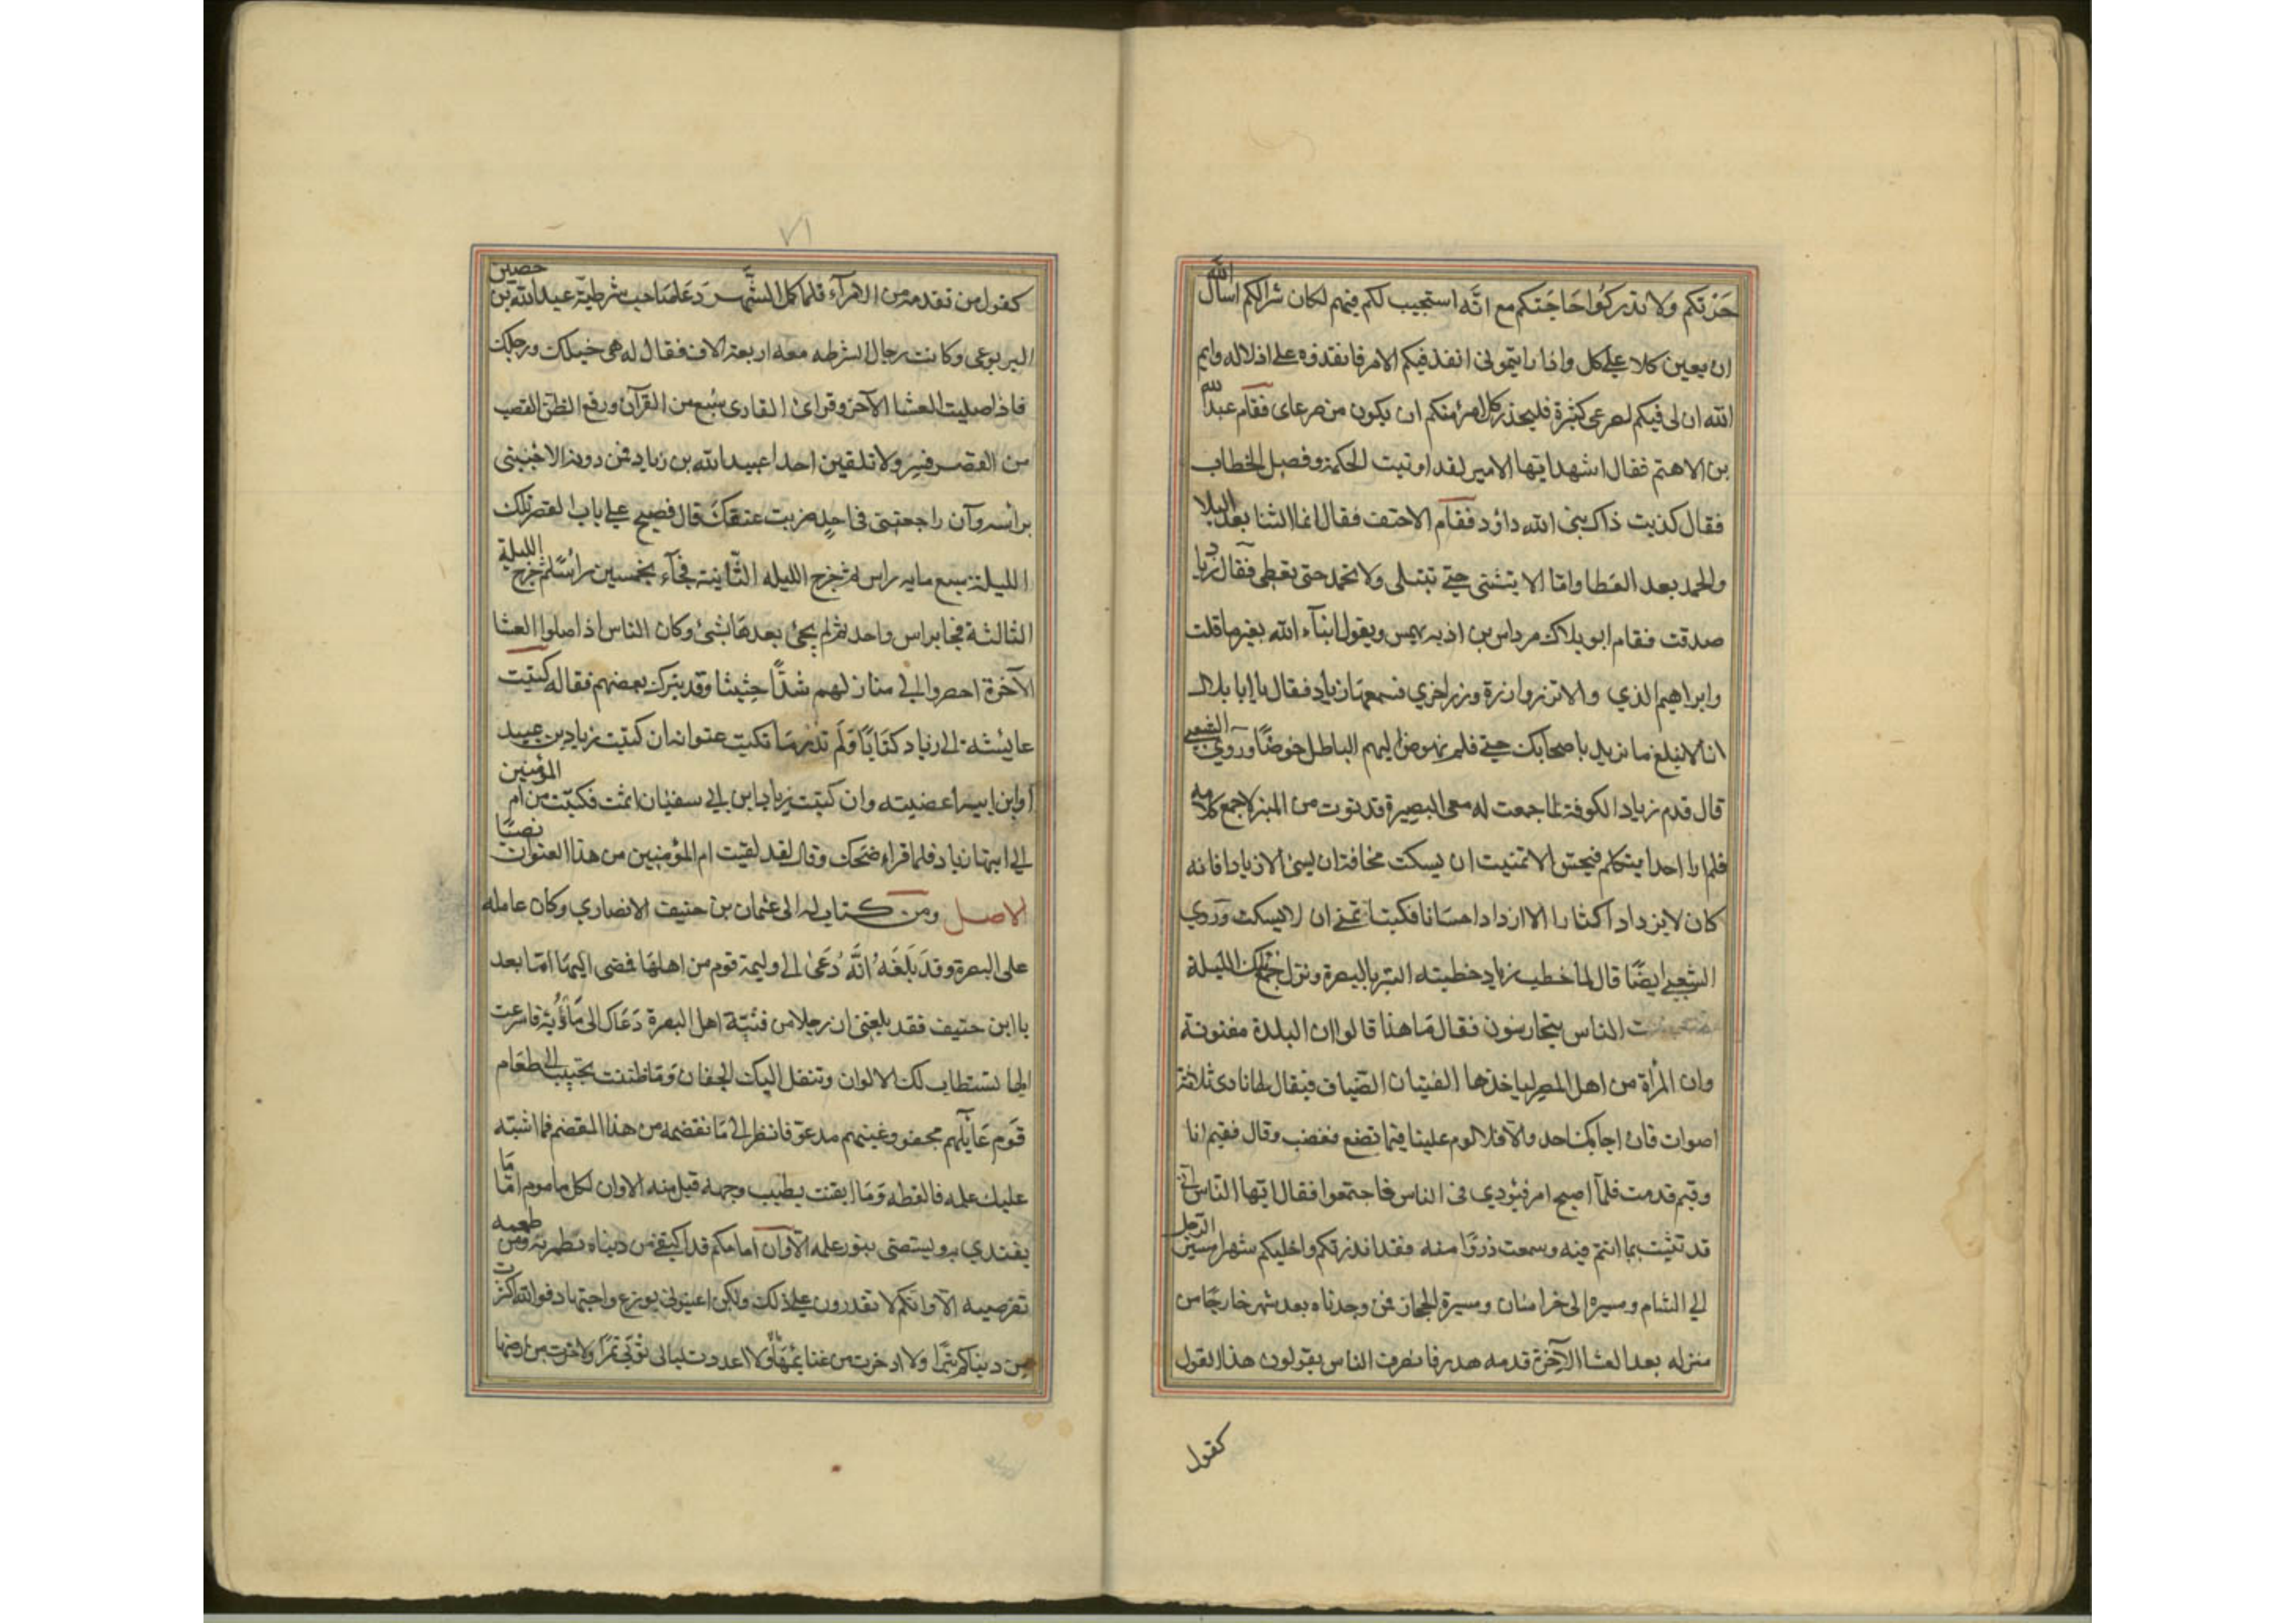 حزتكم ولا تدركوا حاجتكم مع انه استجيب لكم فيهم لكان شرا لكم اسأل الله
ان يعين كلا على كل واذا رايتموني انفذ فيكم الامر فانفذوه على اذلاله وايم
الله ان لى فيكم لصرعى كثيرة فليحذر كل امرء منكم ان يكون من صرعاى فقام عبد الله
بن الاهتم فقال اشهد ايها الامير لقد اوتيت الحكمة وفصل الخطاب
فقال كذبت ذاك نبى الله داؤد فقام الاحنف فقال انما الثنا بعد البلا
والحمد بعد العطا وانا لا نثنى حتى نبتلى ولا نحمد حتى نعطى فقال زياد
صدقت فقام ابو بلال مرداس بن اديه يهمس ويقول انباء الله بغير ما قلت
وابراهيم الذي و الا تزر وازرة وزر اخري فسمعها زياد فقال يا ابا بلال
انا لا نبلغ ما نريد باصحابك حتى نخوض اليهم الباطل خوضا وروي الشعبي
قال قدم زياد الكوفة لما جمعت له مع البصرة فدنوت من المنبر لاسمع كلامه
فلم ار احدا يتكلم فيحسن الا تمنيت ان يسكت مخافة ان يسئ الا زيادا فانه
كان لا يزداد اكثارا الا ازداد احسانا فكنت اتمنى ان لا يسكت وروي
الشعبي ايضا قال لما خطب زياد خطبته البتراء بالبصرة ونزل تلك الليلة
الناس يتحارسون فقال ما هذا قالوا ان البلدة مفتونة
وان المرأة من اهل المصر لياخذها الفتيان الفساق فيقال لها نادى ثلاثة
اصوات فان اجابك احد والا فلا لوم علينا فيما نصنع فغضب وقال ففيم انا
وفيم قدمت فلما اصبح امر فنودي فى الناس فاجتمعوا فقال ايها الناس انى
قد نبئت بما انتم فيه وسمعت ذروا منه فقد انذرتكم واجلتكم شهرا مسير الرجل
الى الشام ومسيره الى خراسان ومسيرة الحجاز فمن وجدناه بعد شهر خارجا من
منزله بعد العشا الاخرة فدمه هدر فانصرف الناس يقولون هذا القول
كقول
٧١
كقول من تقدمه من الامرآء فلما كمل الشهر دعا صاحب شرطته عبد الله بن حصين
اليربوعى وكانت رجال الشرطه معه اربعة الاف فقال له هى خيلك ورجلك
فاذا صليت العشا الآخرة وقراء القارى سبع من القرآن ورفع الطن القصب
من القصر فسر ولا تلقين احدا عبيد الله بن زياد فمن دونه الا جئتنى
براسه وان راجعتنى فى احد ضربت عنقك قال فصبح على باب القصر تلك
الليلة سبع مايه راس ثم خرج الليله الثانية فجآء بخمسين رأسا ثم خرج الليلة
الثالثة فجا براس واحد ثم لم يجئ بعدها بشئ وكان الناس اذا صلوا العشا
الآخرة احضروا الى منازلهم شدا حثيثا وقد يترك بعضهم نعاله كتبت
عايشة الى زياد كتابا فلم تدر ما تكتب عنوانه ان كتبت زياد بن عبيد
او ابن ابيه اغضبته وان كتبت زياد ابن ابى سفيان اثمت فكتبت من ام المؤمنين
الى ابنها زياد فلما قراءه ضحك وقال لقد لقيت ام المؤمنين من هذا العنوان نصبا
الاصل ومن كتاب له الى عثمان بن حنيف الانصاري وكان عامله
على البصرة وقد بلغه انه دعى الى وليمة قوم من اهلها فمضى اليها اما بعد
يا ابن حنيف فقد بلغنى ان رجلا من فتية اهل البصرة دعاك الى مأدبة فاسرعت
اليها تستطاب لك الالوان وتنقل اليك الجفان وما ظننت تجيب الى طعام
قوم عايلهم مجفو وغنيهم مدعو فانظر الى ما تقضمه من هذا المقضم فما اشتبه
عليك علمه فالفظه وما ايقنت بطيب وجهه فنل منه الا وان لكل ماموم اماما
يقتدي به ويستضئ بنور علمه الا وان امامكم قد اكتفى من دنياه بطمريه ومن طعمه
بقرصيه الا وانكم لا تقدرون على ذلك ولكن اعينونى بورع واجتهاد فوالله ما كنزت
من دنياكم تبرا ولا ادخرت من غنايمها وفرا ولا اعددت لبالى ثوبى طمرا ولا حزت من ارضها